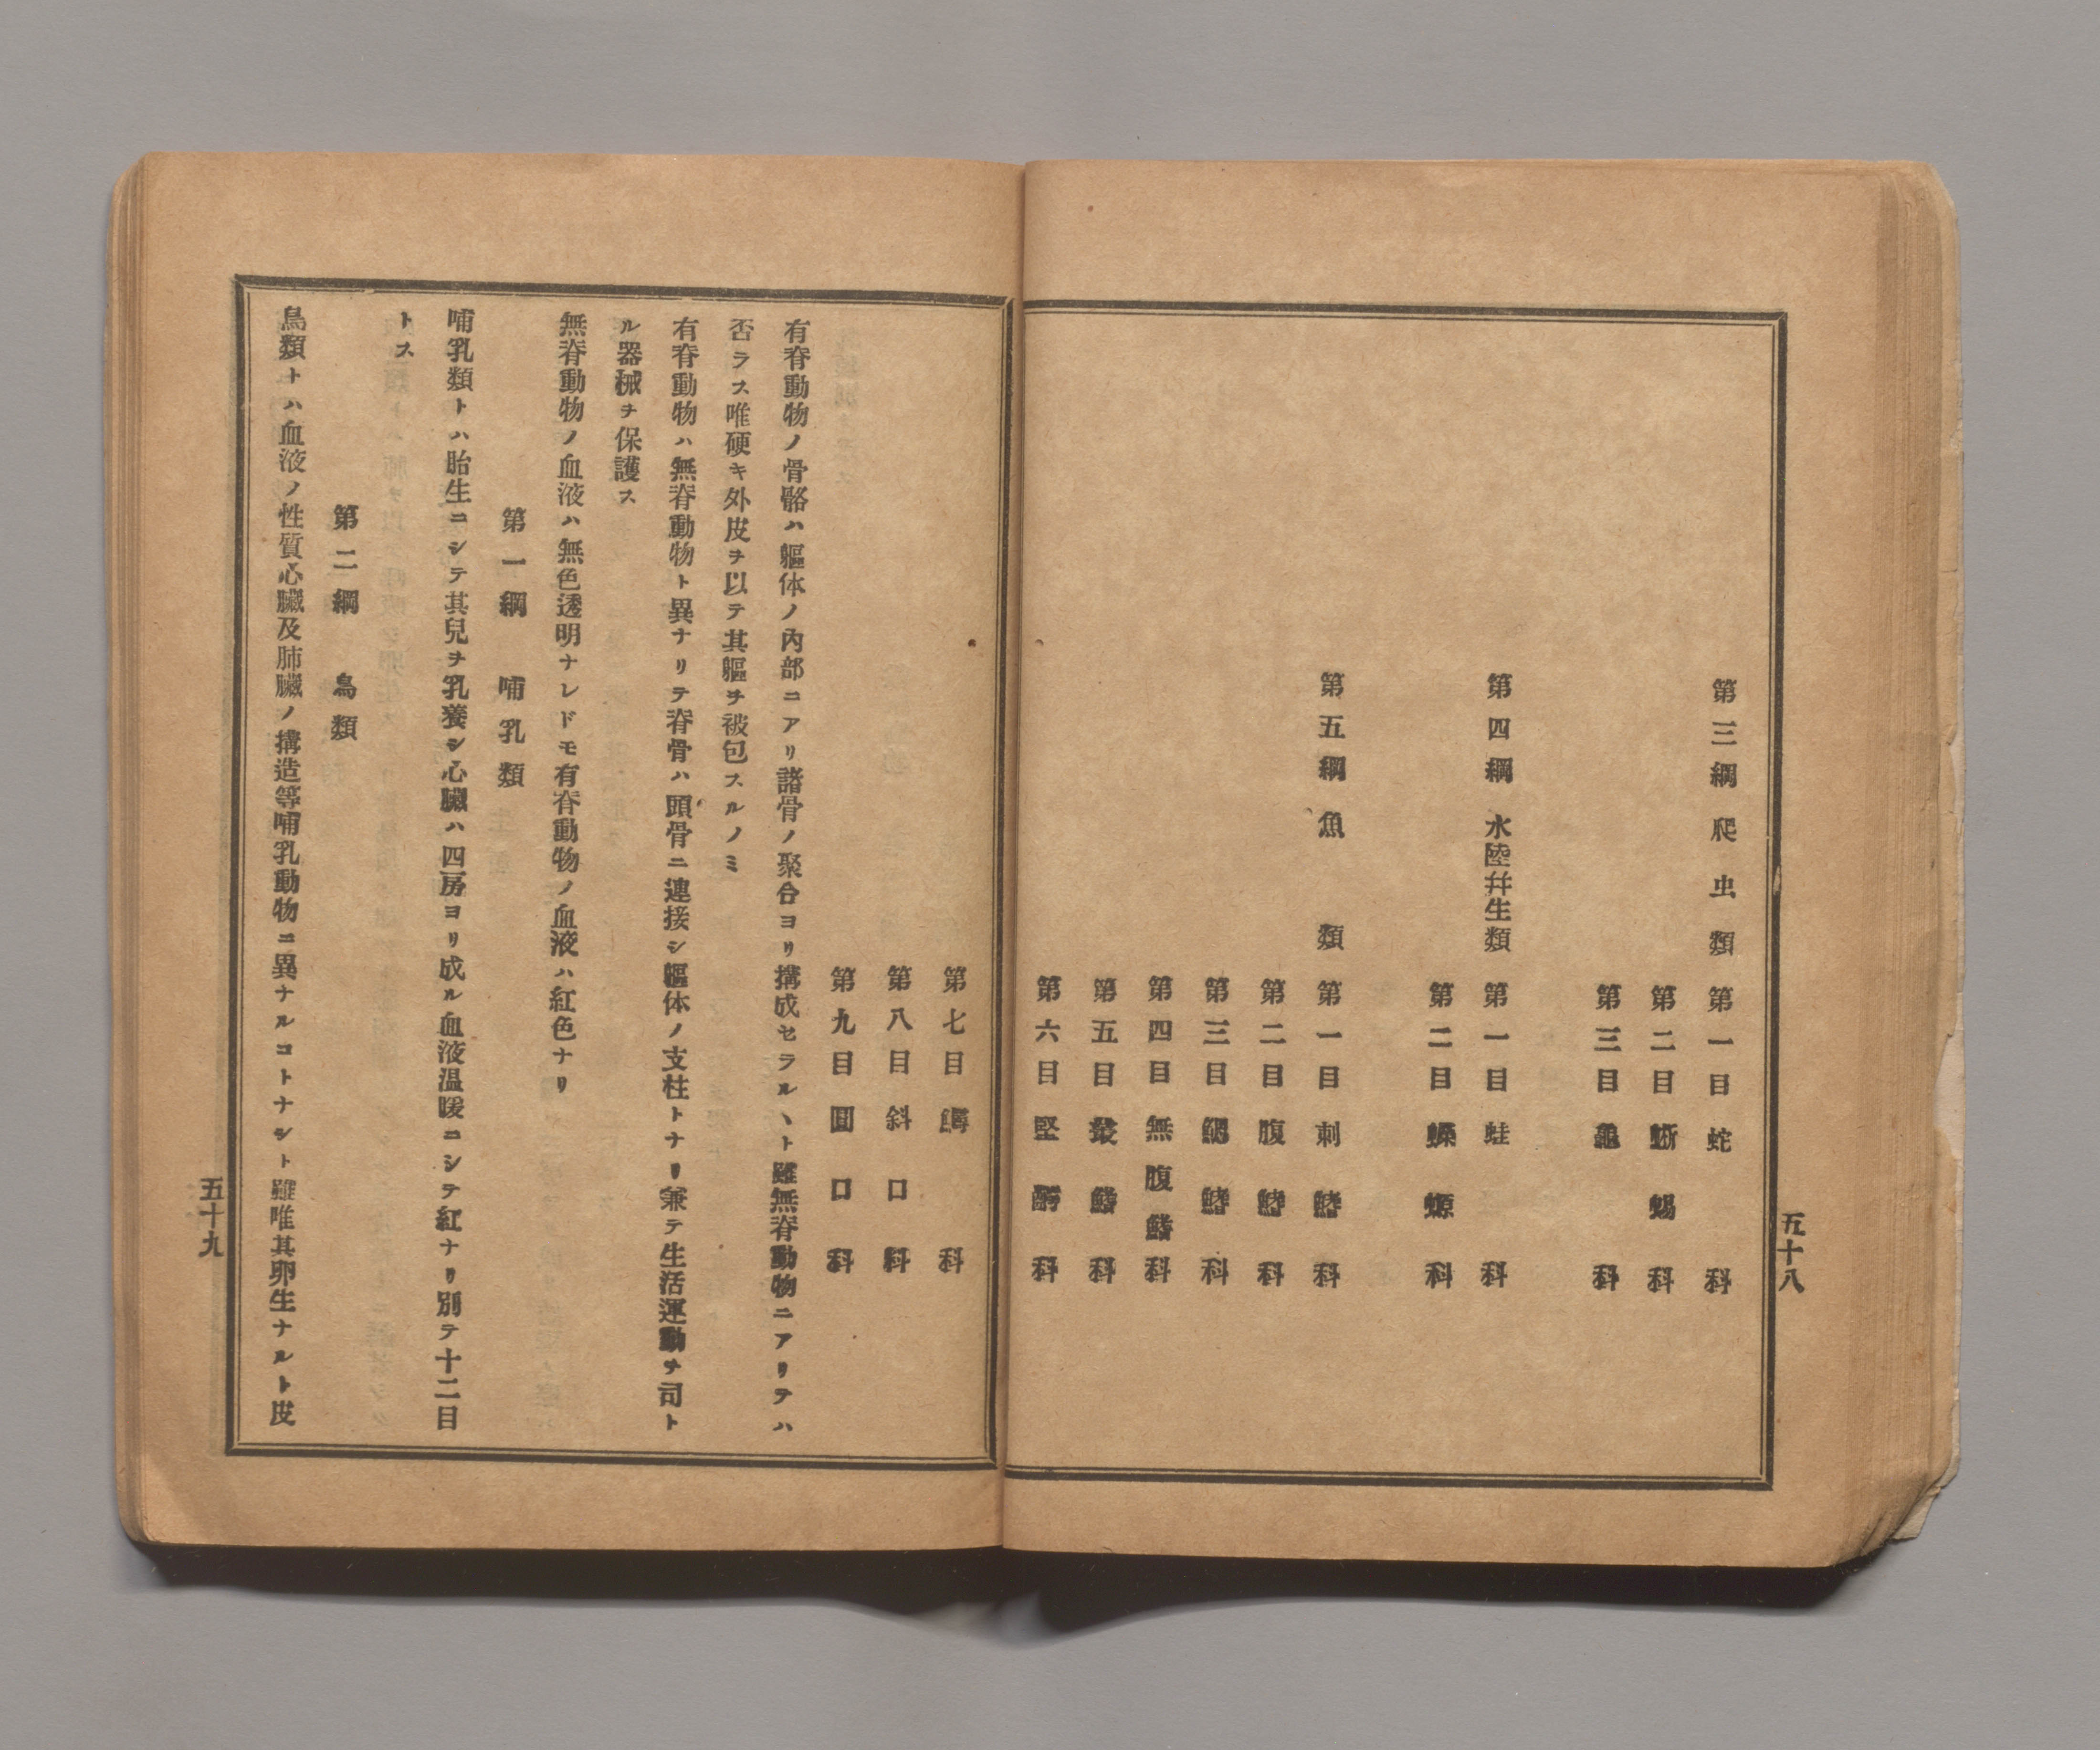 五十八
第三綱 爬虫類 第一目 蛇科
第二目 蜥蜴科
第三目 龜科
第四綱 水陸幷生類 第一目 蛙科
第二目 蠑螈科
第五綱 魚類 第一目 刺鰭科
第二目 腹鰭科
第三目 鰓鰭科
第四目 無腹鰭科
第五目 叢鰭科
第六目 堅科
第七目 科
第八目 斜口科
第九目 圓口科
有脊動物ノ骨骼ハ軀体ノ內部ニアリ諸骨ノ聚合ヨリ搆成セラルヽト雖無脊動物ニアリテハ
否ラス唯硬キ外皮ヲ以テ其軀ヲ被包スルノミ
有脊動物ハ無脊動物ト異ナリテ脊骨ハ頭骨ニ連接シ軀体ノ支柱トナリ兼テ生活運動ヲ司ト
ル器械ヲ保護ス
無脊動物ノ血液ハ無色透明ナレドモ有脊動物ノ血液ハ紅色ナリ
第一綱 哺乳類
哺乳類トハ胎生ニシテ其兒ヲ乳養シ心臟ハ四房ヨリ成ル血液温暖ニシテ紅ナリ別テ十二目
トス
第二綱 鳥類
鳥類ナハ血液ノ性質心臟及肺臟ノ搆造等哺乳動物ニ異ナルコトナシト雖唯其卵生ナルト皮
五十九